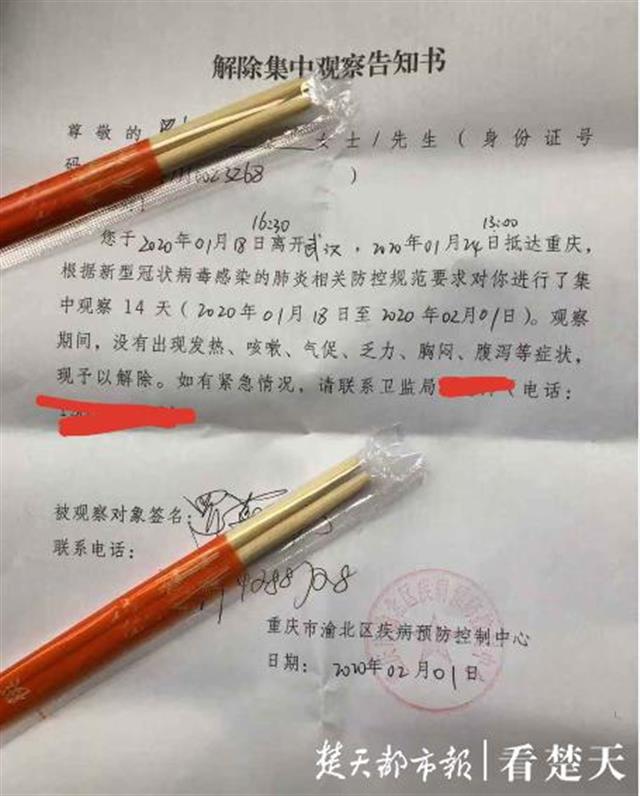 解除集中观察告知书
尊敬的 女士/先生(身份证号
码 23268 )
16:30 13:00
您于2020年01月18日离开武汉,2020年01月24日抵达重庆,
根据新型冠状病毒感染的肺炎相关防控规范要求对你进行了集
中观察14天(2020年01月18日至2020年02月01日)。观察
期间,没有出现发热、咳嗽、气促、乏力、胸闷、腹泻等症状,
现予以解除。如有紧急情况,请联系卫监局 (电话:
被观察对象签名:
联系电话:
重庆市渝北区疾病预防控制中心
日期:2020年02月01日
楚天都市報|看楚天